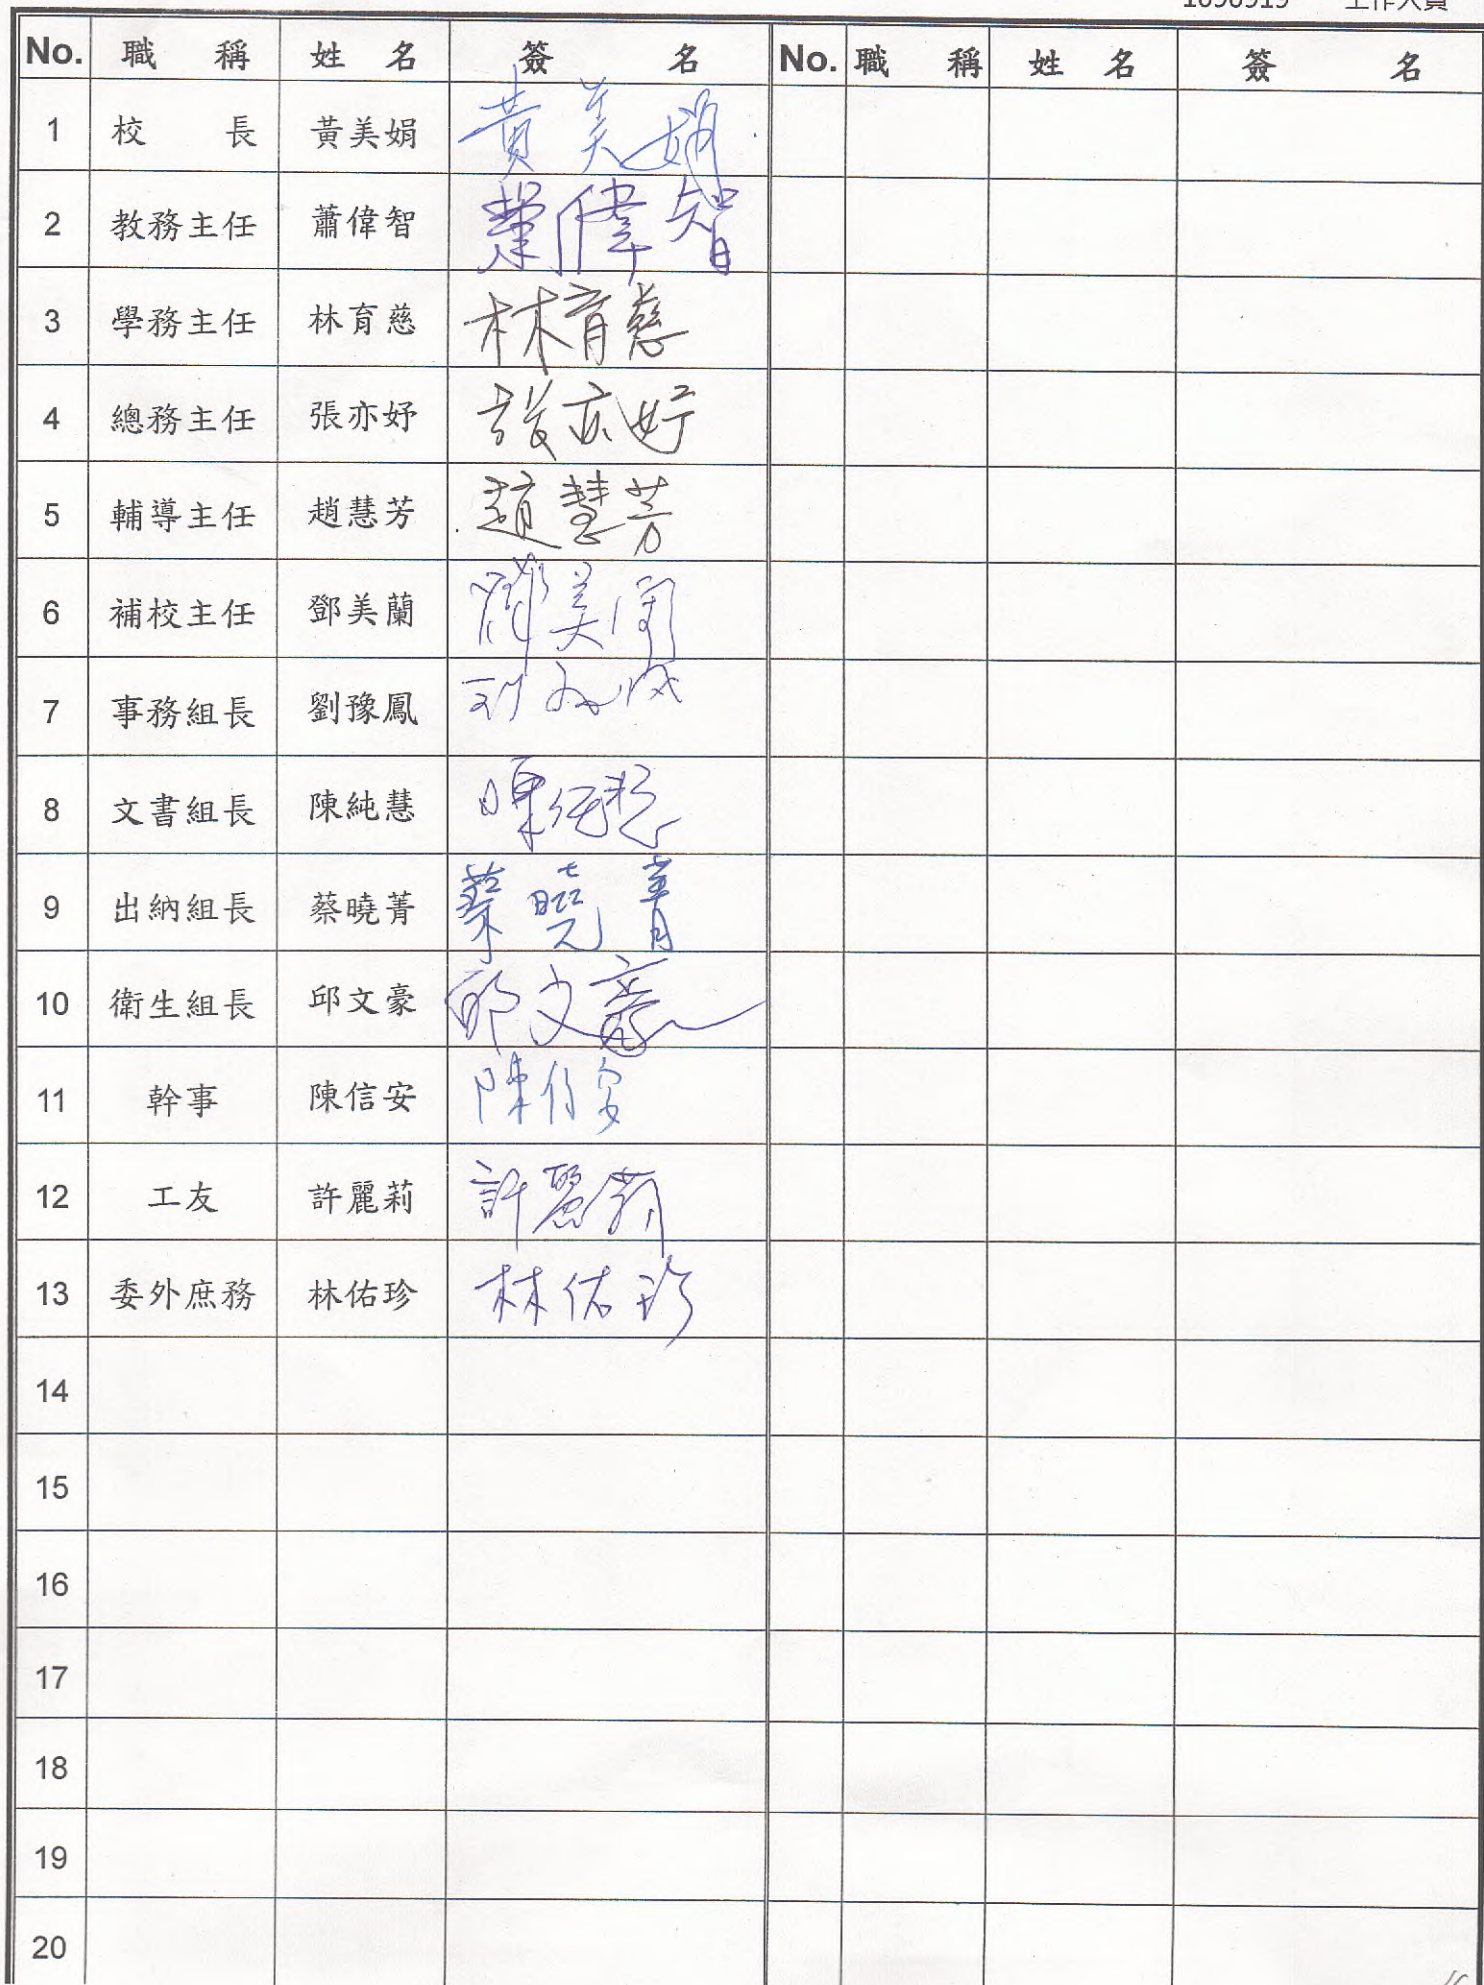 1090919 工作人員
No. 職稱 姓名 簽名 No. 職稱 姓名 簽名
1 校長 黃美娟 黃美娟
2 教務主任 蕭偉智 蕭偉智
3 學務主任 林育慈 林育慈
4 總務主任 張亦妤 張亦妤
5 輔導主任 趙慧芳 趙慧芳
6 補校主任 鄧美蘭 鄧美蘭
7 事務組長 劉豫鳳
8 文書組長 陳純慧 陳純慧
9 出納組長 蔡曉菁 蔡曉菁
10 衛生組長 邱文豪 邱文豪
11 幹事 陳信安 陳信安
12 工友 許麗莉 許麗莉
13 委外庶務 林佑珍 林佑珍
14
15
16
17
18
19
20